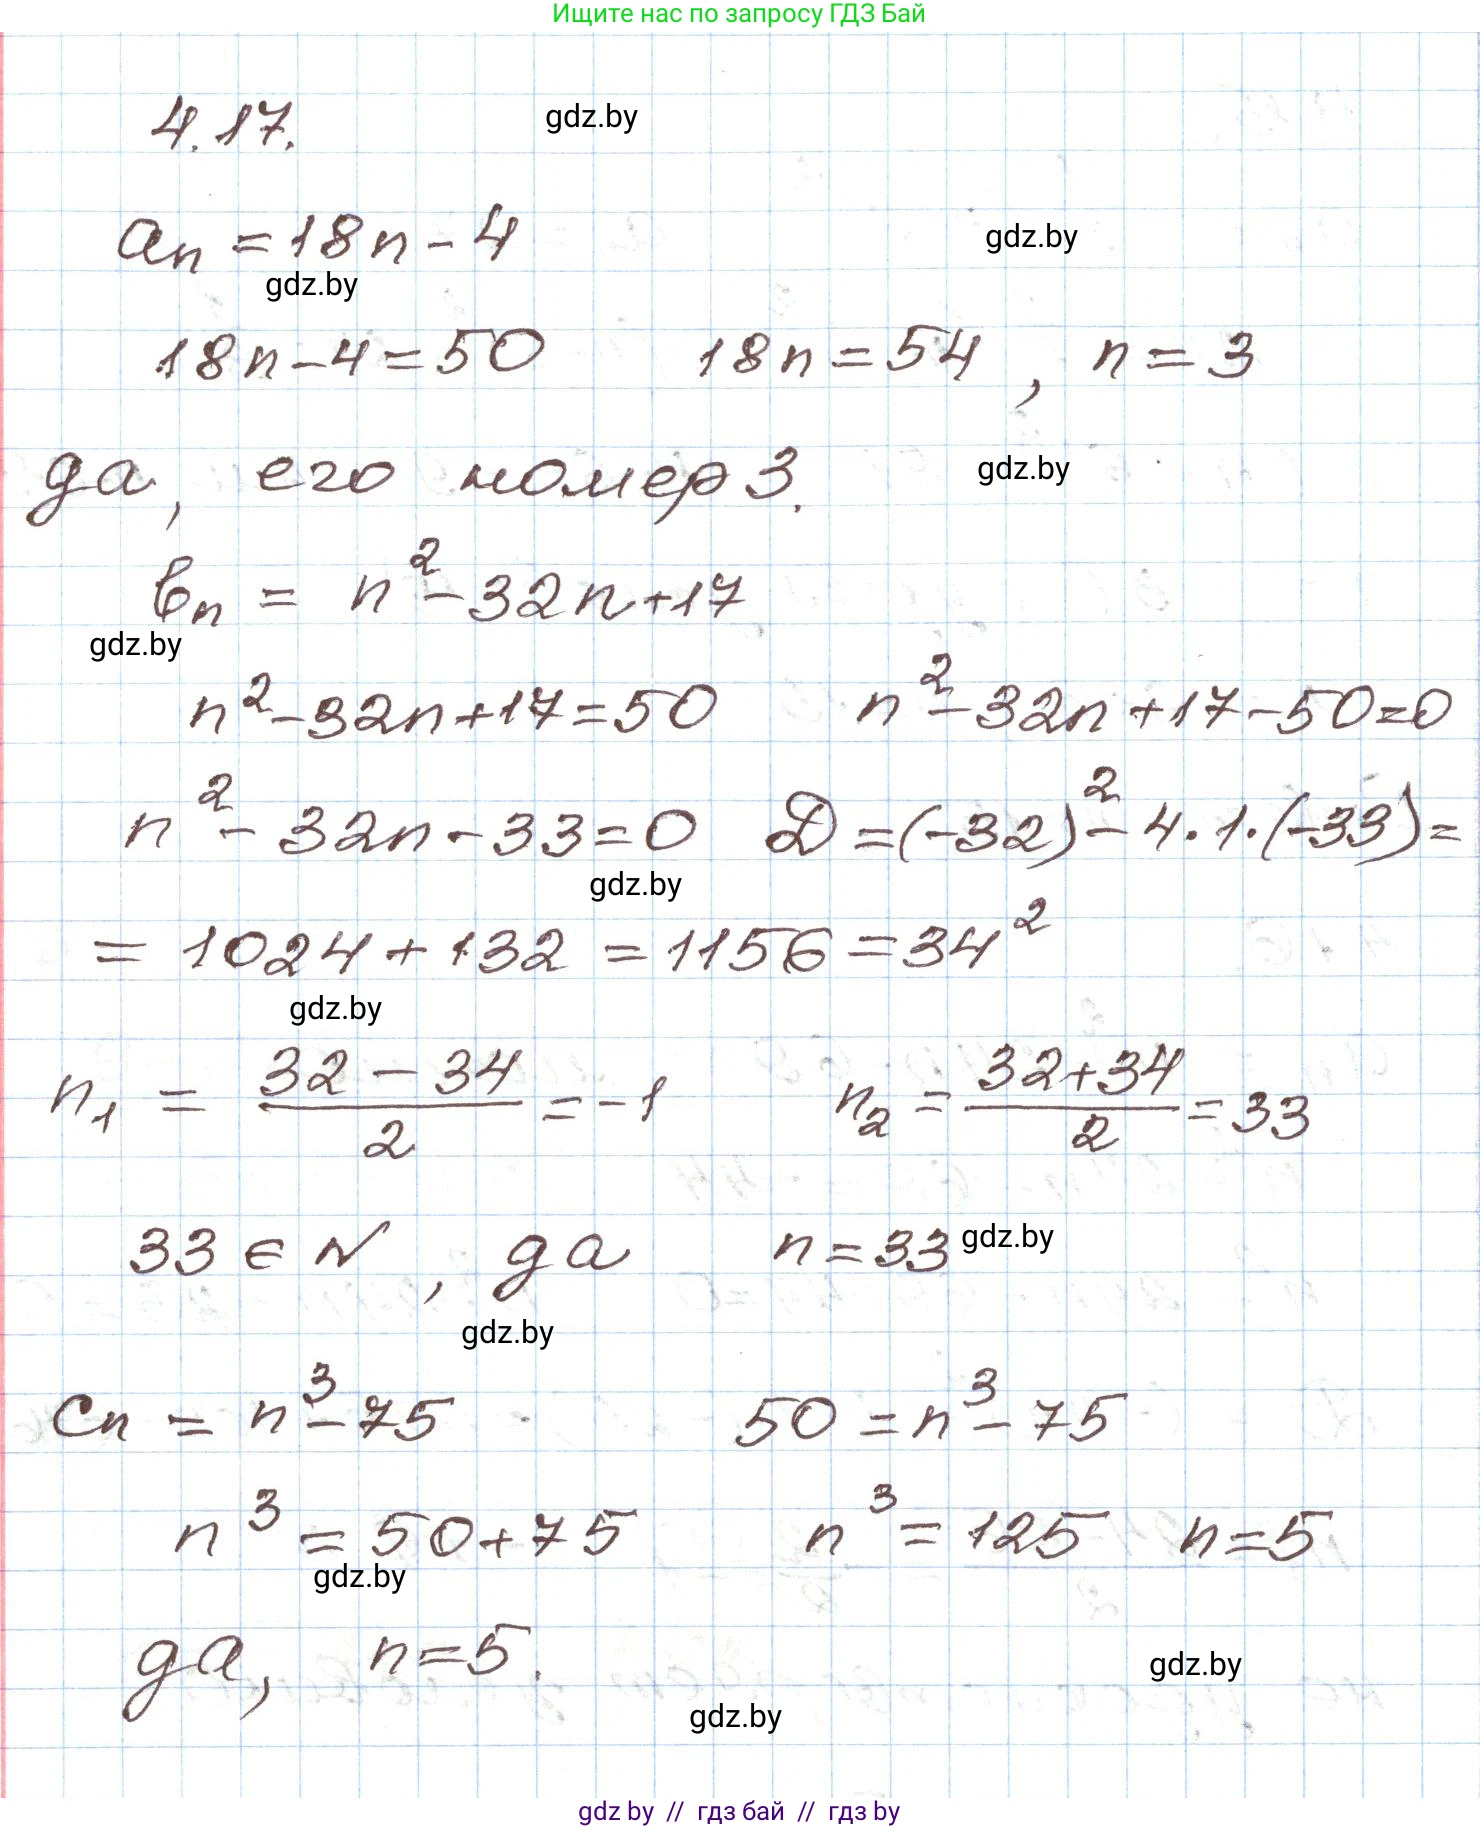 Ищите нас по запросу ГДЗ Бай
4.17.
gdz.by
aₙ = 18n - 4
gdz.by
gdz.by
18n - 4 = 50 18n = 54, n = 3
да, его номер 3.
gdz.by
вₙ = n² - 32n + 17
gdz.by
n² - 32n + 17 = 50 n² - 32n + 17 - 50 = 0
n² - 32n - 33 = 0 D = (-32)² - 4·1·(-33) =
gdz.by
= 1024 + 132 = 1156 = 34²
gdz.by
n₁ = (32 - 34)/2 = -1 n₂ = (32 + 34)/2 = 33
33 ∈ N, да n = 33
gdz.by
gdz.by
cₙ = n³ - 75 50 = n³ - 75
n³ = 50 + 75 n³ = 125 n = 5
gdz.by
да, n = 5.
gdz.by
gdz.by
gdz by // гдз бай // гдз by